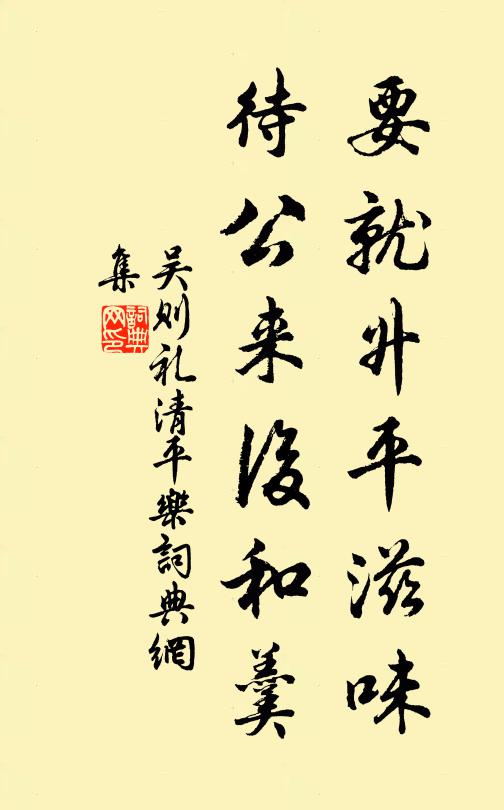 要就升平滋味
待公来後和羹
吴则礼清平樂詞典網
集
詞典
网印